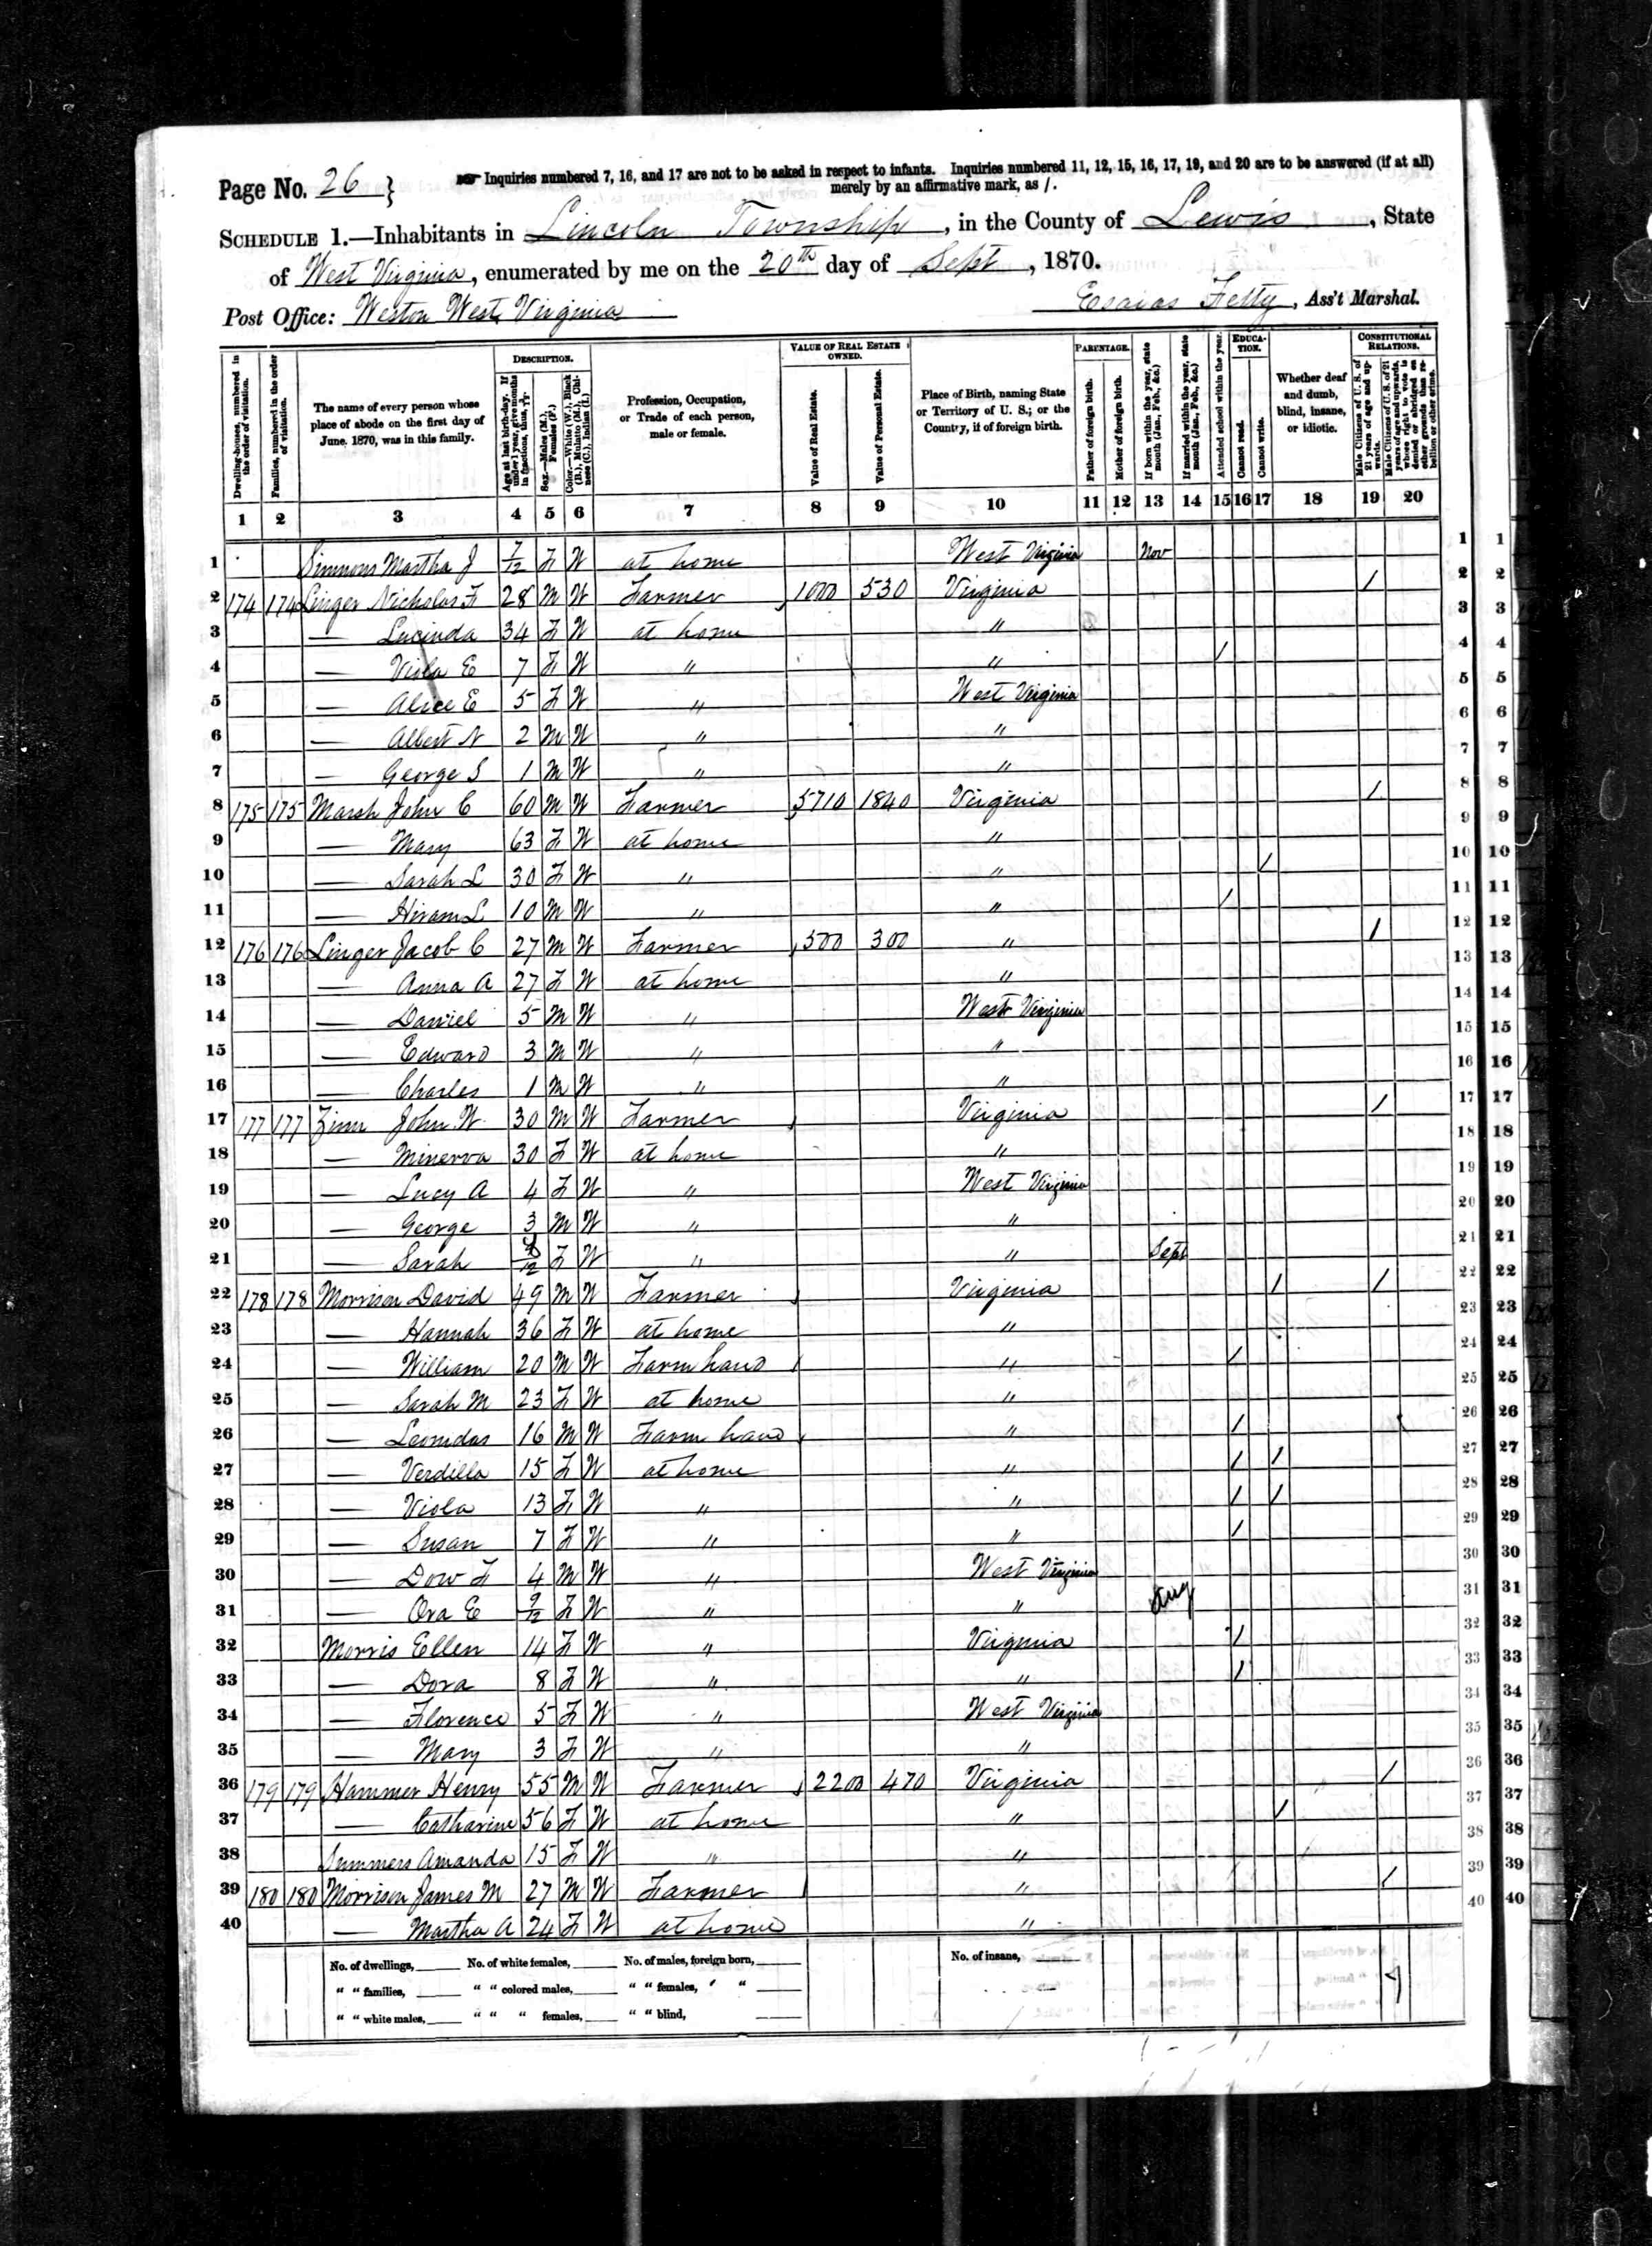 Page No. 26 } Inquiries numbered 7, 16, and 17 are not to be asked in respect to infants. Inquiries numbered 11, 12, 15, 16, 17, 19, and 20 are to be answered (if at all)
merely by an affirmative mark, as /.
SCHEDULE 1.—Inhabitants in Lincoln Township, in the County of Lewis, State
of West Virginia, enumerated by me on the 20th day of Sept, 1870.
Post Office: Weston West Virginia
Esaias Fetty, Ass't Marshal.
Dwelling-houses, numbered in the order of visitation.
Families, numbered in the order of visitation.
The name of every person whose place of abode on the first day of June, 1870, was in this family.
DESCRIPTION.
Age at last birth-day. If under 1 year, give months in fractions, thus, 3/12.
Sex.—Males (M.), Females (F.)
Color.—White (W.), Black (B.), Mulatto (M.), Chinese (C.), Indian (I.)
Profession, Occupation, or Trade of each person, male or female.
VALUE OF REAL ESTATE OWNED.
Value of Real Estate.
Value of Personal Estate.
Place of Birth, naming State or Territory of U. S.; or the Country, if of foreign birth.
PARENTAGE.
Father of foreign birth.
Mother of foreign birth.
If born within the year, state month (Jan., Feb., &c.)
If married within the year, state month (Jan., Feb., &c.)
Attended school within the year.
EDUCATION.
Cannot read.
Cannot write.
Whether deaf and dumb, blind, insane, or idiotic.
CONSTITUTIONAL RELATIONS.
Male Citizens of U. S. of 21 years of age and upwards.
Male Citizens of U. S. of 21 years of age and upwards, whose right to vote is denied or abridged on other grounds than rebellion or other crime.
1 2 3 4 5 6 7 8 9 10 11 12 13 14 15 16 17 18 19 20
1 Simmons Martha J 7/12 F W at home West Virginia Nov 1 1
2 174 174 Linger Nicholas F 28 M W Farmer 1000 530 Virginia / 2 2
3 — Lucinda 34 F W at home " 3 3
4 — Viola E 7 F W " " / 4 4
5 — Alice E 5 F W " West Virginia 5 5
6 — Albert N 2 M W " " 6 6
7 — George S 1 M W " " 7 7
8 175 175 Marsh John C 60 M W Farmer 5710 1840 Virginia / 8 8
9 — Mary 63 F W at home " 9 9
10 — Sarah L 30 F W " " / 10 10
11 — Hiram L 10 M W " " / 11 11
12 176 176 Linger Jacob C 27 M W Farmer 500 300 " / 12 12
13 — Anna A 27 F W at home " 13 13
14 — Daniel 5 M W " West Virginia 14 14
15 — Edward 3 M W " " 15 15
16 — Charles 1 M W " " 16 16
17 177 177 Zinn John W 30 M W Farmer Virginia / 17 17
18 — Minerva 30 F W at home " 18 18
19 — Lucy A 4 F W " West Virginia 19 19
20 — George 3 M W " " 20 20
21 — Sarah /12 F W " " Sept 21 21
22 178 178 Morrison David 49 M W Farmer Virginia / / 22 22
23 — Hannah 36 F W at home " 23 23
24 — William 20 M W Farm hand " / 24 24
25 — Sarah M 23 F W at home " 25 25
26 — Leonidas 16 M W Farm hand " / 26 26
27 — Verdilla 15 F W at home " / / 27 27
28 — Viola 13 F W " " / / 28 28
29 — Susan 7 F W " " / 29 29
30 — Dow F 4 M W " West Virginia 30 30
31 — Ora E 9/12 F W " " Aug 31 31
32 Morris Ellen 14 F W " Virginia / 32 32
33 — Dora 8 F W " " / 33 33
34 — Florence 5 F W " West Virginia 34 34
35 — Mary 3 F W " " 35 35
36 179 179 Hammer Henry 55 M W Farmer 2200 470 Virginia / 36 36
37 — Catharine 56 F W at home " / 37 37
38 Summers Amanda 15 F W " " 38 38
39 180 180 Morrison James M 27 M W Farmer " / 39 39
40 — Martha A 24 F W at home " 40 40
No. of dwellings, No. of white females, No. of males, foreign born, No. of insane,
" " families, " " colored males, " " females, " "
" " white males, " " " females, " " blind,